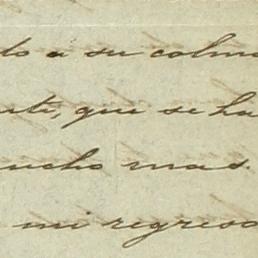 do a su colmo
nte, que se ha
mucho mas.
mi regreso